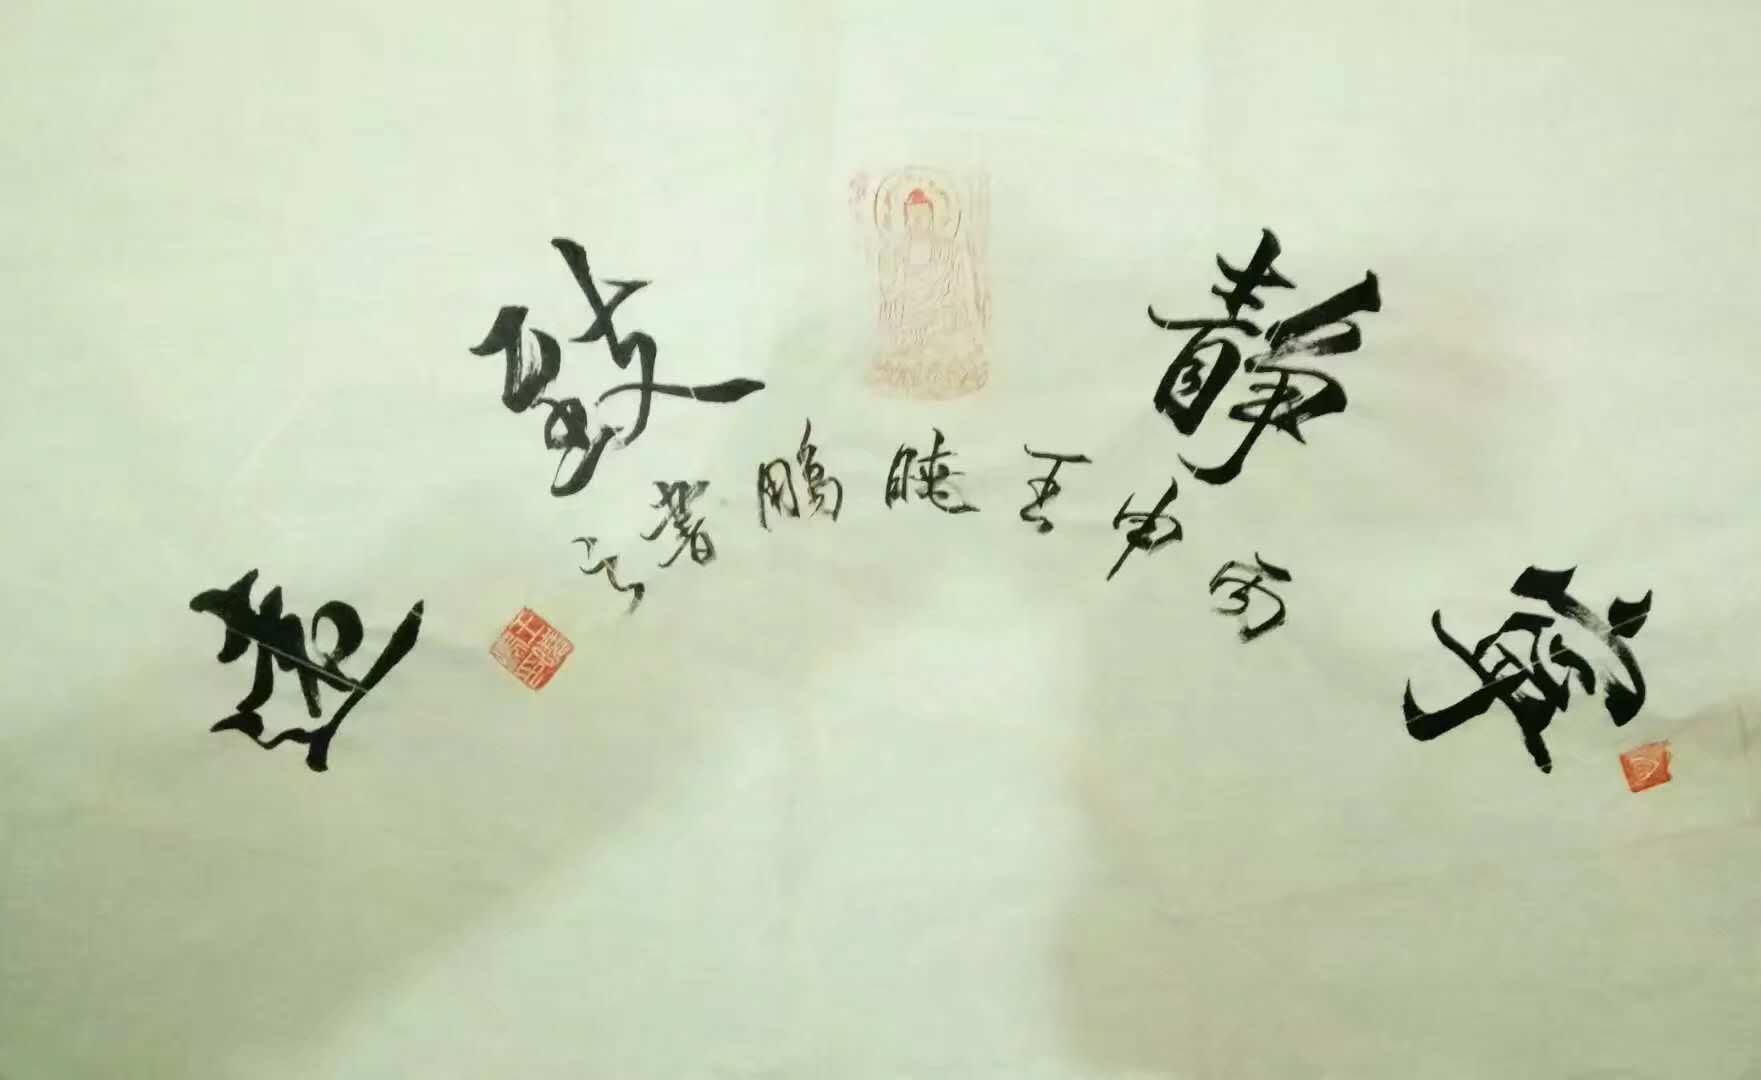 寧靜致遠
丙申王晓鵬